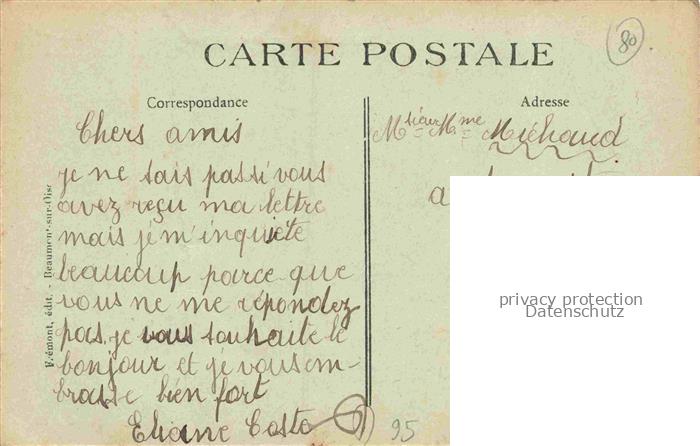 80
CARTE POSTALE
Correspondance
Adresse
Chers amis
je ne sais passi vous
avez reçu ma lettre
mais je m'inquiète
beaucoup parce que
vous ne me répondez
pas, je vous souhaite le
bonjour et je vous em-
brasse bien fort
Eliane Costa
Mtieur Mme Michaud
a
95
Frémont, édit. - Beaumont-sur-Oise
privacy protection
Datenschutz